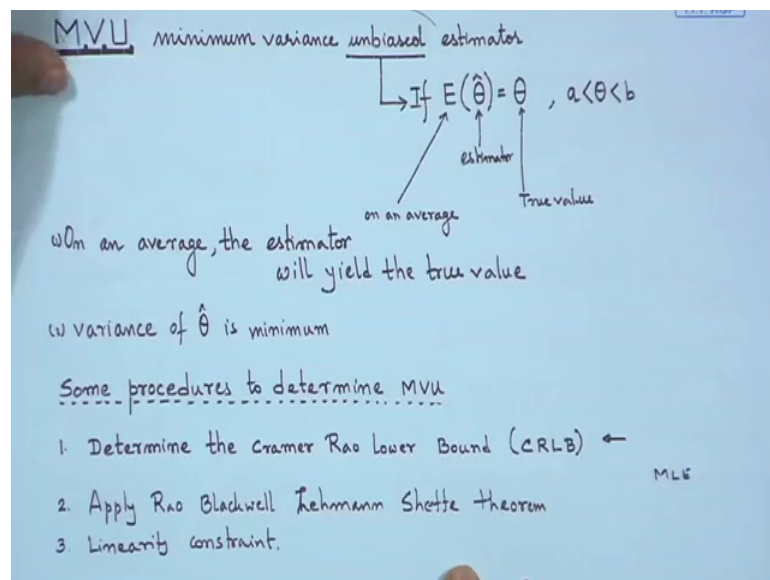 M.V.U minimum variance unbiased estimator
If E(θ̂) = θ , a<θ<b
estimator
True value
on an average
On an average, the estimator
will yield the true value
variance of θ̂ is minimum
Some procedures to determine MVU
1. Determine the Cramer Rao Lower Bound (CRLB) ←
MLE
2. Apply Rao Blackwell Lehmann Sheffe theorem
3. Linearity constraint.